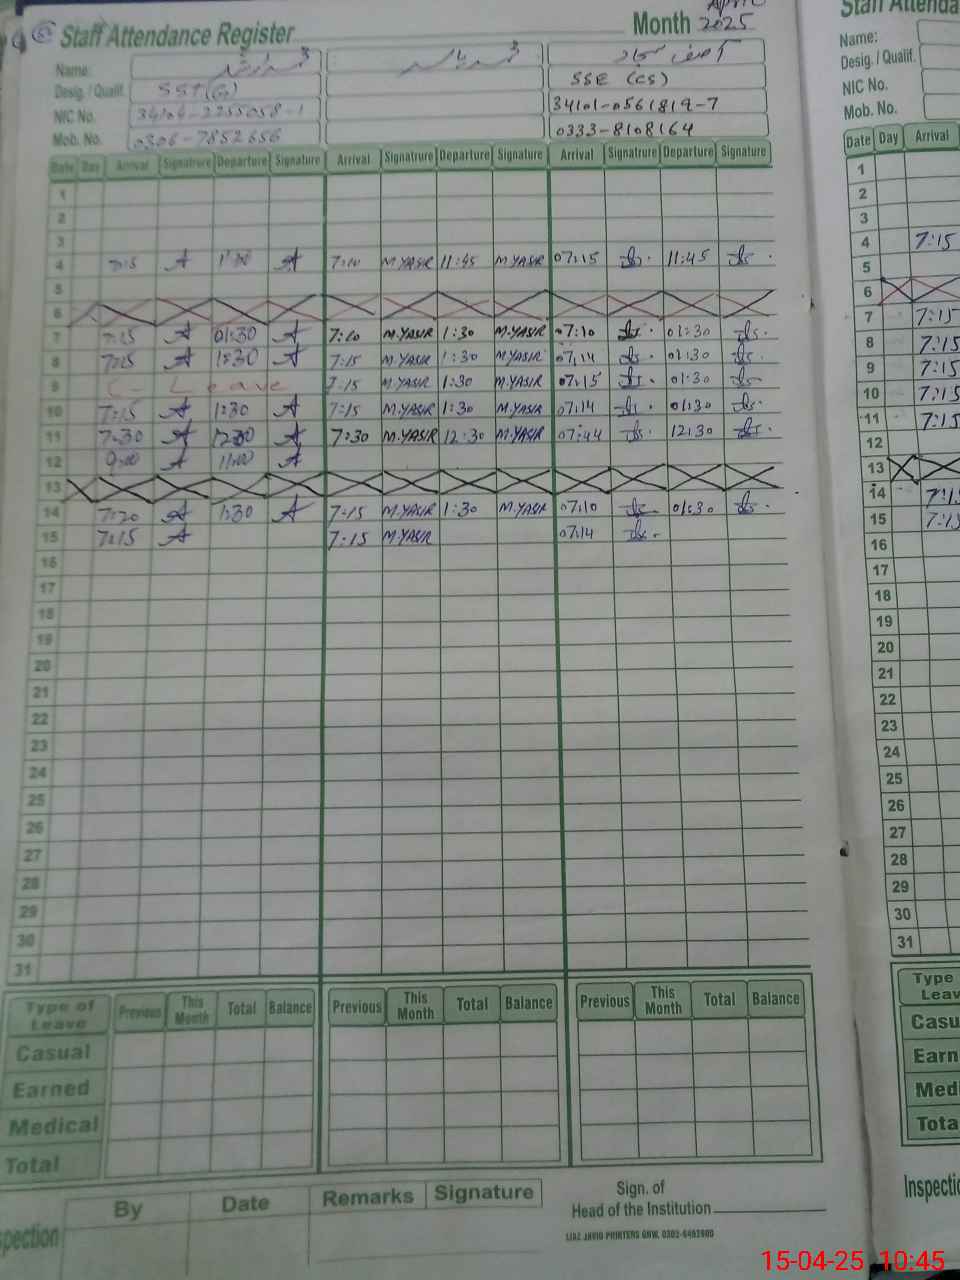 Staff Attendance Register
Month April 2025
Name: محمد ارشد محمد یاسر آصف سجاد
Desig. / Qualif. SST(G) SSE (CS)
NIC No. 34104-2255058-1 34101-0561819-7
Mob. No. 0306-7852656 0333-8108164
Date Day Arrival Signatrure Departure Signature Arrival Signatrure Departure Signature Arrival Signatrure Departure Signature
1
2
3
4 7:15 A 11:30 A 7:10 M.YASIR 11:45 M.YASIR 07:15 11:45
5
6
7 7:15 A 01:30 A 7:10 M.YASIR 1:30 M.YASIR 07:10 01:30
8 7:15 A 1:30 A 7:15 M.YASIR 1:30 M.YASIR 07:14 01:30
9 C- Leave 7:15 M.YASIR 1:30 M.YASIR 07:15 01:30
10 7:15 A 1:30 A 7:15 M.YASIR 1:30 M.YASIR 07:14 01:30
11 7:30 A 12:30 A 7:30 M.YASIR 12:30 M.YASIR 07:44 12:30
12 9:00 A 11:00 A
13
14 7:20 A 1:30 A 7:15 M.YASIR 1:30 M.YASIR 07:10 01:30
15 7:15 A 7:15 M.YASIR 07:14
16
17
18
19
20
21
22
23
24
25
26
27
28
29
30
31
Type of Leave Previous This Month Total Balance Previous This Month Total Balance Previous This Month Total Balance
Casual
Earned
Medical
Total
By Date Remarks Signature
spection
Sign. of
Head of the Institution
LIAZ JAVID PRINTERS GRW. 0302-6492600
Staff Attenda
Name:
Desig. / Qualif.
NIC No.
Mob. No.
Date Day Arrival
1
2
3
4 7:15
5
6
7 7:15
8 7:15
9 7:15
10 7:15
11 7:15
12
13
14 7:15
15 7:15
16
17
18
19
20
21
22
23
24
25
26
27
28
29
30
31
Type
Leav
Casu
Earn
Medi
Tota
Inspectio
15-04-25 10:45